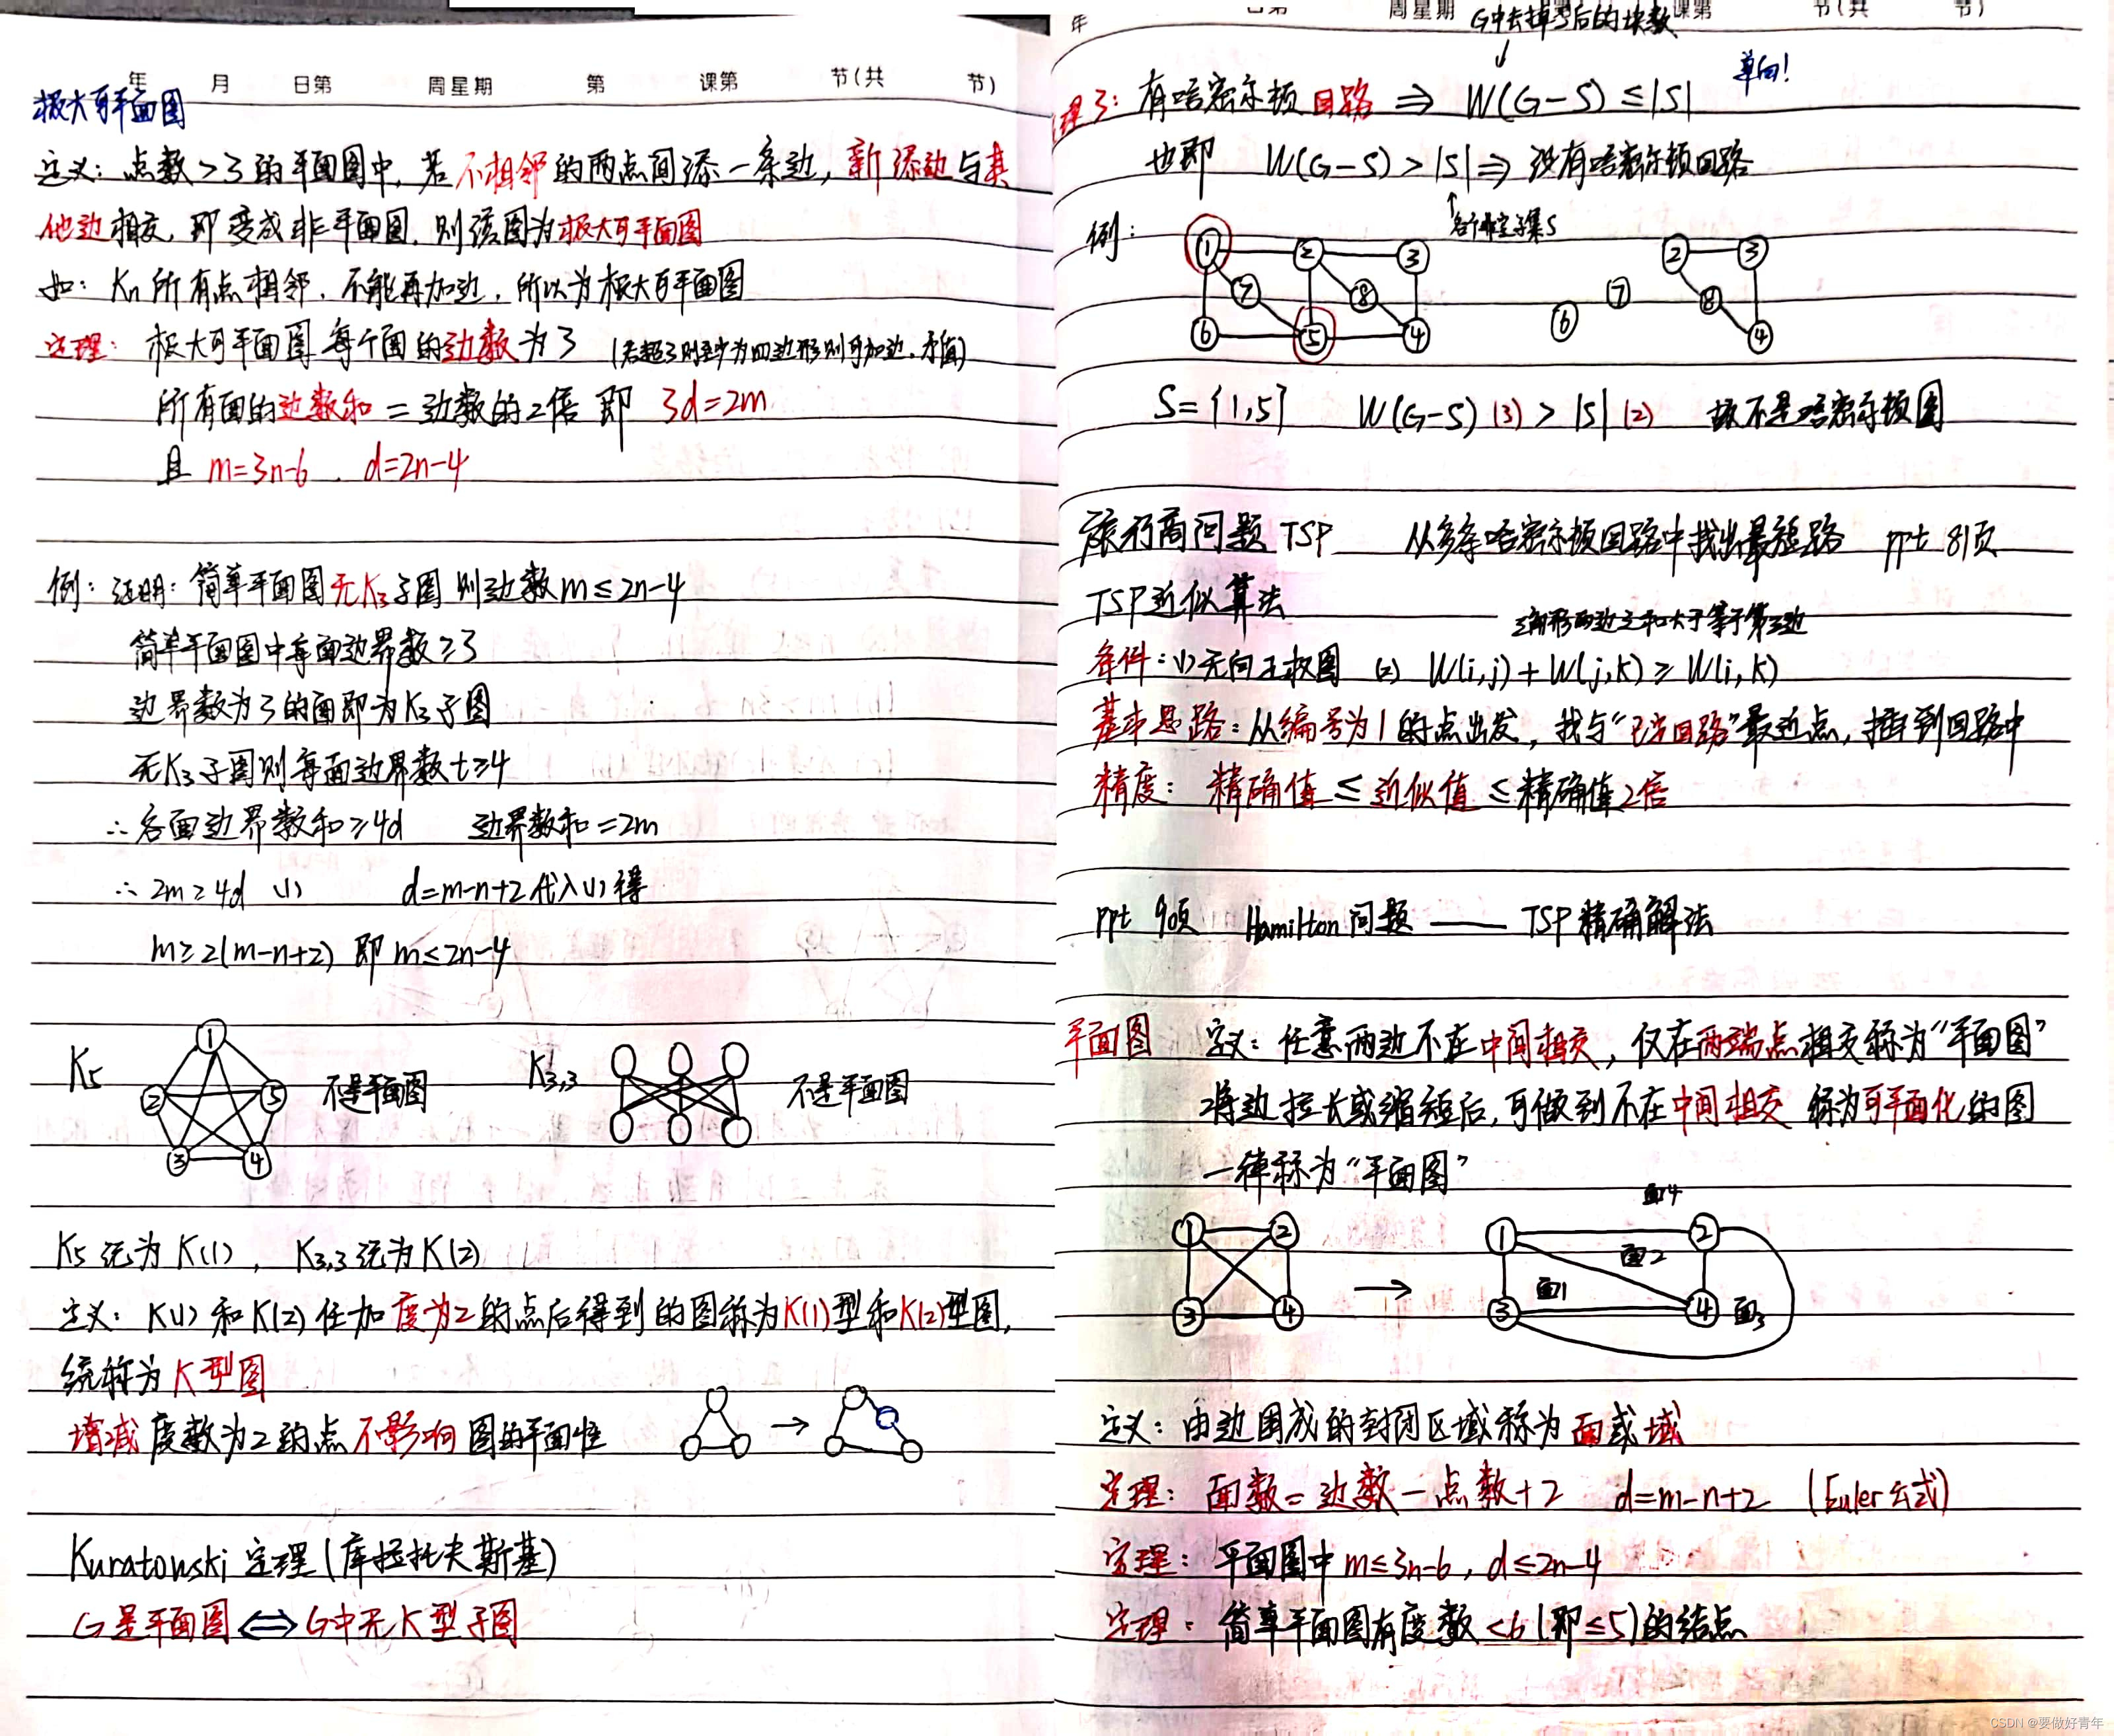 年 月 日第 周星期 第 课第 节(共 节)
极大可平面图
定义: 点数>3的平面图中, 若不相邻的两点间添一条边, 新添边与其
他边相交, 即变成非平面图, 则该图为极大可平面图
如: Kn 所有点相邻, 不能再加边, 所以为极大可平面图
定理: 极大可平面图每个面的边数为3 (若超3则至少为四边形则可加边, 矛盾)
所有面的边数和 = 边数的2倍 即 3d=2m
且 m=3n-6 , d=2n-4
例: 证明: 简单平面图无K3子图 则边数m≤2n-4
简单平面图中每面边界数≥3
边界数为3的面即为K3子图
无K3子图则每面边界数t≥4
∴各面边界数和≥4d 边界数和=2m
∴ 2m≥4d (1) d=m-n+2代入(1)得
m≥2(m-n+2) 即 m≤2n-4
K5 ① ② ③ ④ ⑤ 不是平面图 K3,3 不是平面图
K5记为K(1), K3,3记为K(2)
定义: K(1)和K(2)任加度为2的点后得到的图称为K(1)型和K(2)型图,
统称为K型图
增减度数为2的点不影响图的平面性
→
Kuratowski 定理(库拉托夫斯基)
G是平面图⟺G中无K型子图
年 周星期 课第 节(共 节)
G中去掉S后的块数
↓
单向!
理3: 有哈密尔顿回路 ⇒ W(G-S)≤|S|
也即 W(G-S)>|S|⇒没有哈密尔顿回路
↑各个非空子集S
例:
① ② ③ ⑦ ⑧ ⑥ ⑤ ④
② ③ ⑦ ⑧ ⑥ ④
S={1,5} W(G-S)(3)>|S|(2) 故不是哈密尔顿图
旅行商问题TSP 从多条哈密尔顿回路中找出最短路 ppt 81页
TSP近似算法
三角形两边之和大于等于第三边
条件: (1)无向正权图 (2) W(i,j)+W(j,k)≥W(i,k)
基本思路: 从编号为1的点出发, 找与“已定回路”最近点, 插到回路中
精度: 精确值≤近似值≤精确值2倍
ppt 90页 Hamilton问题 —— TSP精确解法
平面图 定义: 任意两边不在中间相交, 仅在两端点相交称为“平面图”
将边拉长或缩短后, 可做到不在中间相交 称为可平面化的图
一律称为“平面图”
① ② ③ ④ → ① ② ③ ④ 面1 面2 面3 面4
定义: 由边围成的封闭区域称为面或域
定理: 面数=边数-点数+2 d=m-n+2 (Euler公式)
定理: 平面图中m≤3n-6, d≤2n-4
定理: 简单平面图有度数<6(即≤5)的结点
CSDN @要做好青年